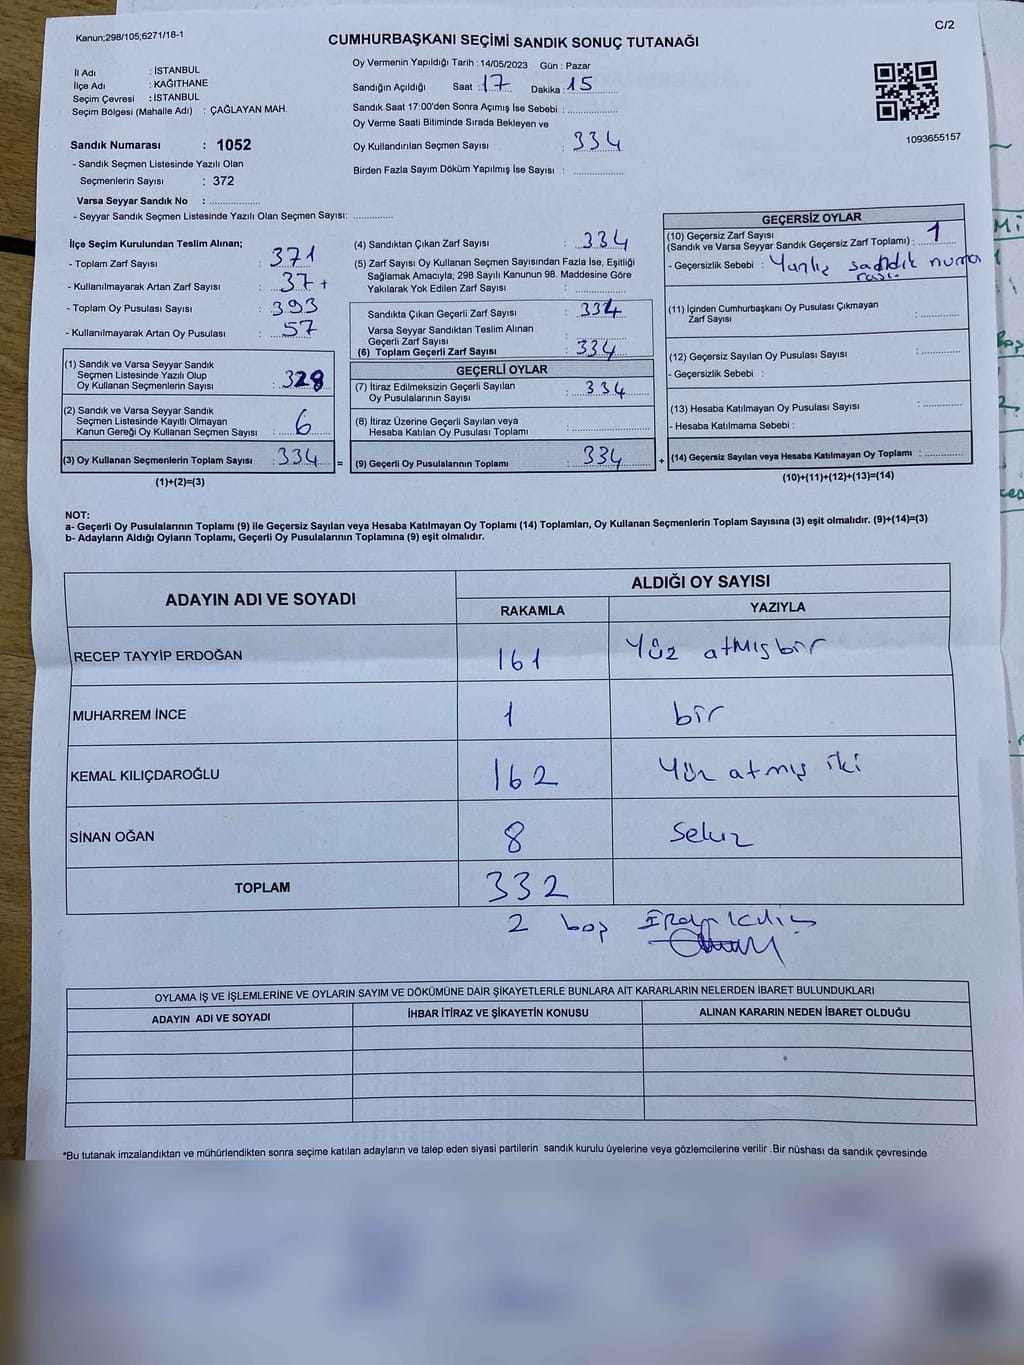 Kanun;298/105;6271/18-1
C/2
CUMHURBAŞKANI SEÇİMİ SANDIK SONUÇ TUTANAĞI
İl Adı : İSTANBUL
İlçe Adı : KAĞITHANE
Seçim Çevresi : İSTANBUL
Seçim Bölgesi (Mahalle Adı) : ÇAĞLAYAN MAH.
Oy Vermenin Yapıldığı Tarih : 14/05/2023 Gün : Pazar
Sandığın Açıldığı Saat : 17 Dakika : 15
Sandık Saat 17:00'den Sonra Açımış İse Sebebi :
Oy Verme Saati Bitiminde Sırada Bekleyen ve
Oy Kullandırılan Seçmen Sayısı : 334
Birden Fazla Sayım Döküm Yapılmış İse Sayısı :
1093655157
Sandık Numarası : 1052
- Sandık Seçmen Listesinde Yazılı Olan
Seçmenlerin Sayısı : 372
Varsa Seyyar Sandık No :
- Seyyar Sandık Seçmen Listesinde Yazılı Olan Seçmen Sayısı:
İlçe Seçim Kurulundan Teslim Alınan;
- Toplam Zarf Sayısı : 371
- Kullanılmayarak Artan Zarf Sayısı : 37+
- Toplam Oy Pusulası Sayısı : 393
- Kullanılmayarak Artan Oy Pusulası : 57
(1) Sandık ve Varsa Seyyar Sandık
Seçmen Listesinde Yazılı Olup
Oy Kullanan Seçmenlerin Sayısı : 328
(2) Sandık ve Varsa Seyyar Sandık
Seçmen Listesinde Kayıtlı Olmayan
Kanun Gereği Oy Kullanan Seçmen Sayısı : 6
(3) Oy Kullanan Seçmenlerin Toplam Sayısı : 334 =
(1)+(2)=(3)
(4) Sandıktan Çıkan Zarf Sayısı : 334
(5) Zarf Sayısı Oy Kullanan Seçmen Sayısından Fazla İse, Eşitliği
Sağlamak Amacıyla; 298 Sayılı Kanunun 98. Maddesine Göre
Yakılarak Yok Edilen Zarf Sayısı :
Sandıkta Çıkan Geçerli Zarf Sayısı : 334
Varsa Seyyar Sandıktan Teslim Alınan
Geçerli Zarf Sayısı :
(6) Toplam Geçerli Zarf Sayısı : 334
GEÇERLİ OYLAR
(7) İtiraz Edilmeksizin Geçerli Sayılan
Oy Pusulalarının Sayısı : 334
(8) İtiraz Üzerine Geçerli Sayılan veya
Hesaba Katılan Oy Pusulası Toplamı :
(9) Geçerli Oy Pusulalarının Toplamı : 334 +
GEÇERSİZ OYLAR
(10) Geçersiz Zarf Sayısı
(Sandık ve Varsa Seyyar Sandık Geçersiz Zarf Toplamı) : 1
- Geçersizlik Sebebi : Yanlış sandık numa
rası.
(11) İçinden Cumhurbaşkanı Oy Pusulası Çıkmayan
Zarf Sayısı :
(12) Geçersiz Sayılan Oy Pusulası Sayısı :
- Geçersizlik Sebebi :
(13) Hesaba Katılmayan Oy Pusulası Sayısı :
- Hesaba Katılmama Sebebi :
(14) Geçersiz Sayılan veya Hesaba Katılmayan Oy Toplamı :
(10)+(11)+(12)+(13)=(14)
NOT:
a- Geçerli Oy Pusulalarının Toplamı (9) ile Geçersiz Sayılan veya Hesaba Katılmayan Oy Toplamı (14) Toplamları, Oy Kullanan Seçmenlerin Toplam Sayısına (3) eşit olmalıdır. (9)+(14)=(3)
b- Adayların Aldığı Oyların Toplamı, Geçerli Oy Pusulalarının Toplamına (9) eşit olmalıdır.
ADAYIN ADI VE SOYADI
ALDIĞI OY SAYISI
RAKAMLA YAZIYLA
RECEP TAYYİP ERDOĞAN 161 Yüz atmışbir
MUHARREM İNCE 1 bir
KEMAL KILIÇDAROĞLU 162 Yüz atmış iki
SİNAN OĞAN 8 Sekiz
TOPLAM 332
2 boş
OYLAMA İŞ VE İŞLEMLERİNE VE OYLARIN SAYIM VE DÖKÜMÜNE DAİR ŞİKAYETLERLE BUNLARA AİT KARARLARIN NELERDEN İBARET BULUNDUKLARI
ADAYIN ADI VE SOYADI İHBAR İTİRAZ VE ŞİKAYETİN KONUSU ALINAN KARARIN NEDEN İBARET OLDUĞU
*Bu tutanak imzalandıktan ve mühürlendikten sonra seçime katılan adayların ve talep eden siyasi partilerin sandık kurulu üyelerine veya gözlemcilerine verilir .Bir nüshası da sandık çevresinde